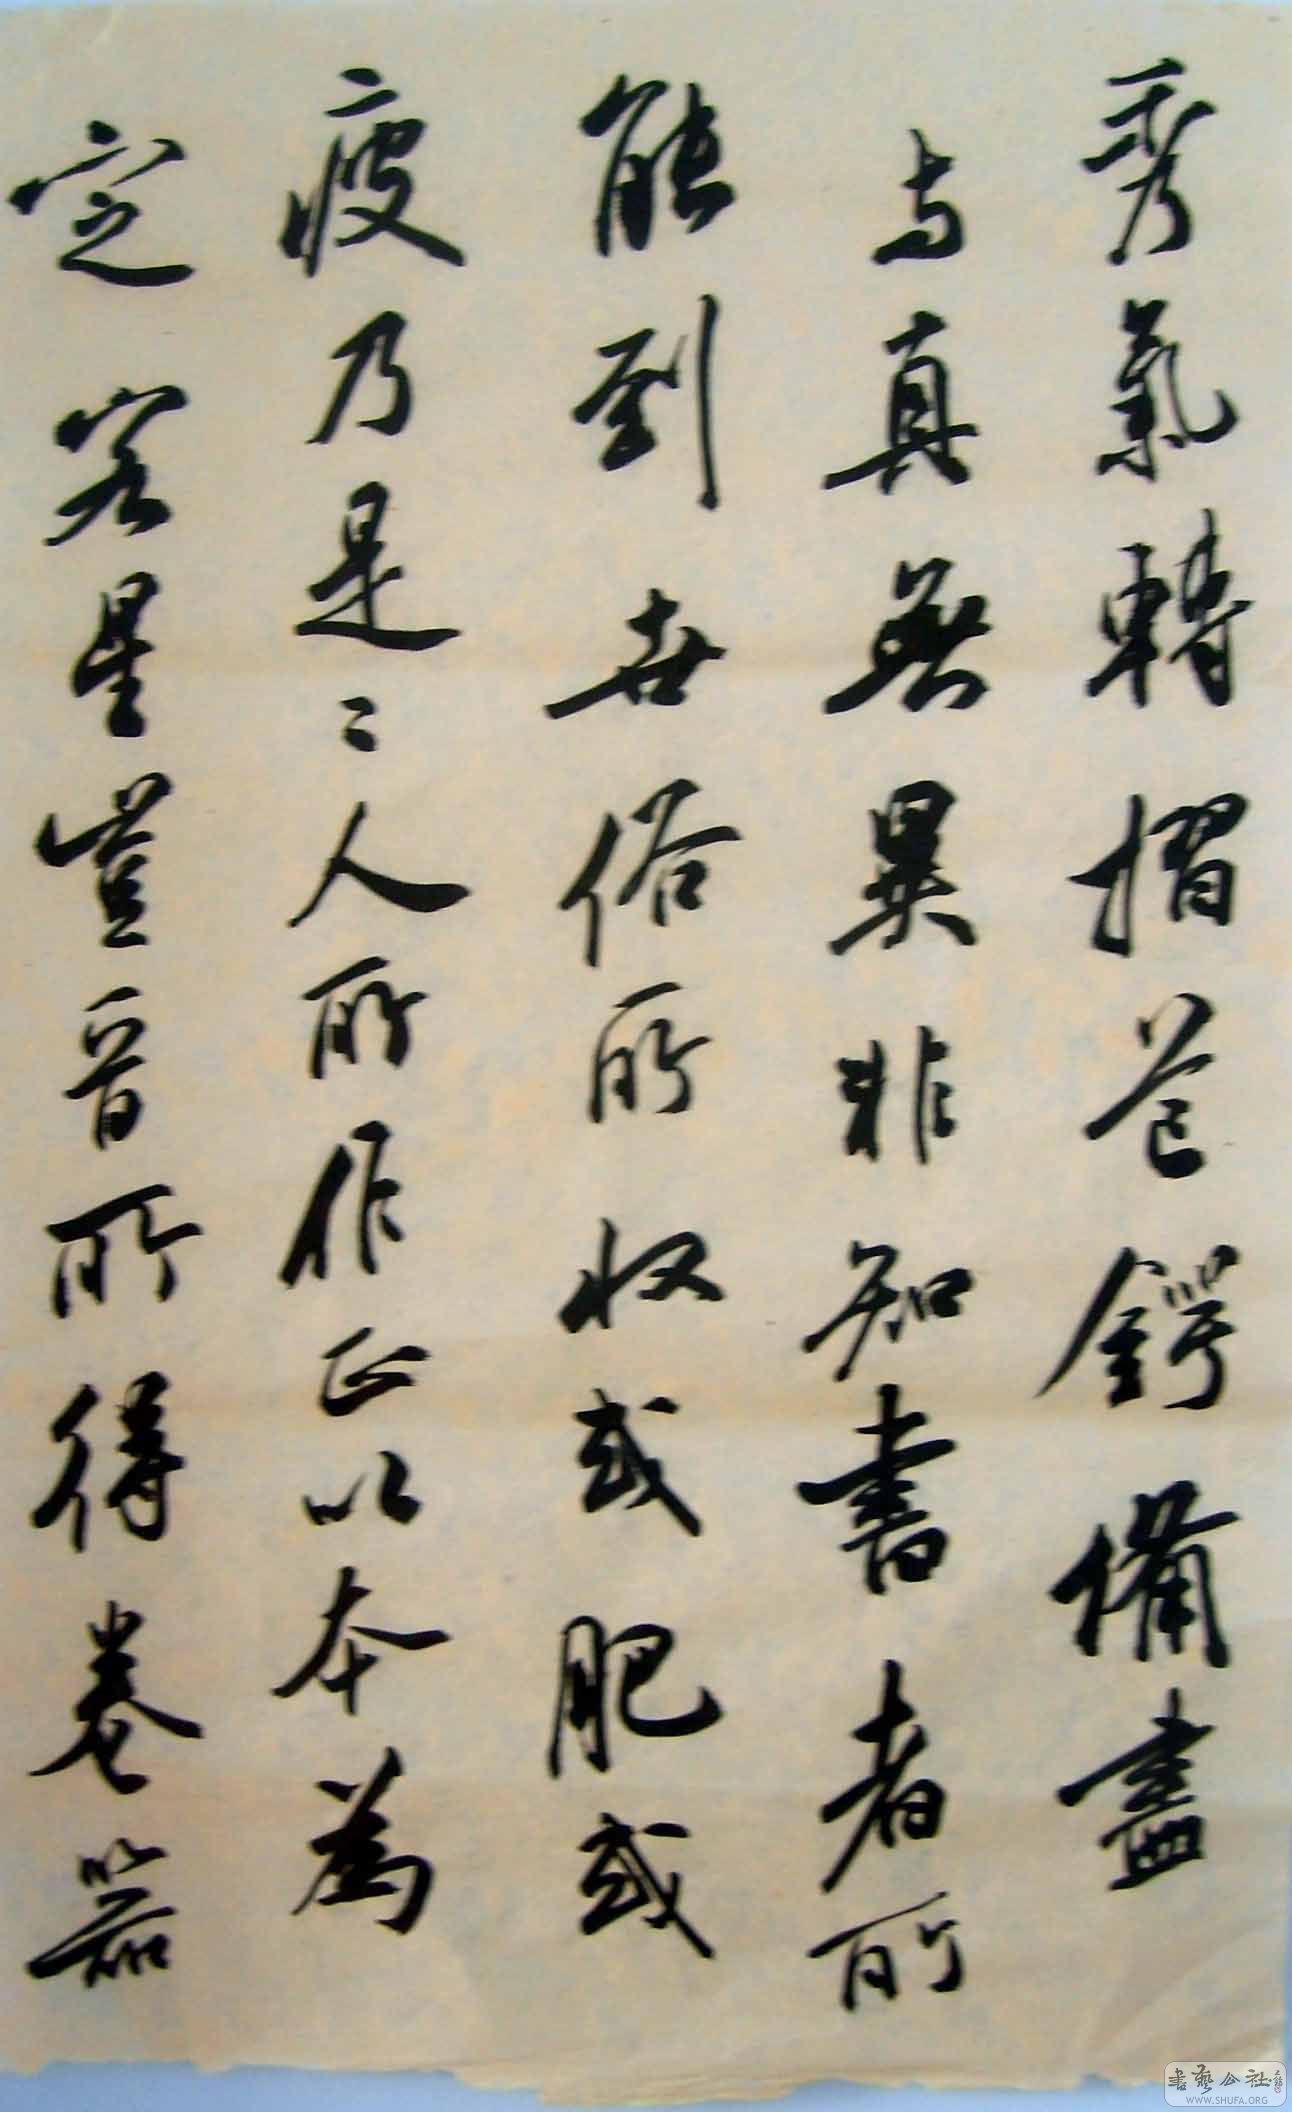 秀氣轉摺芒鍔備盡
与真無異非知書者所
能到世俗所收或肥或
瘦乃是工人所作正以本為
定 客星豈晋所得卷器
書藝公社
WWW.SHUFA.ORG